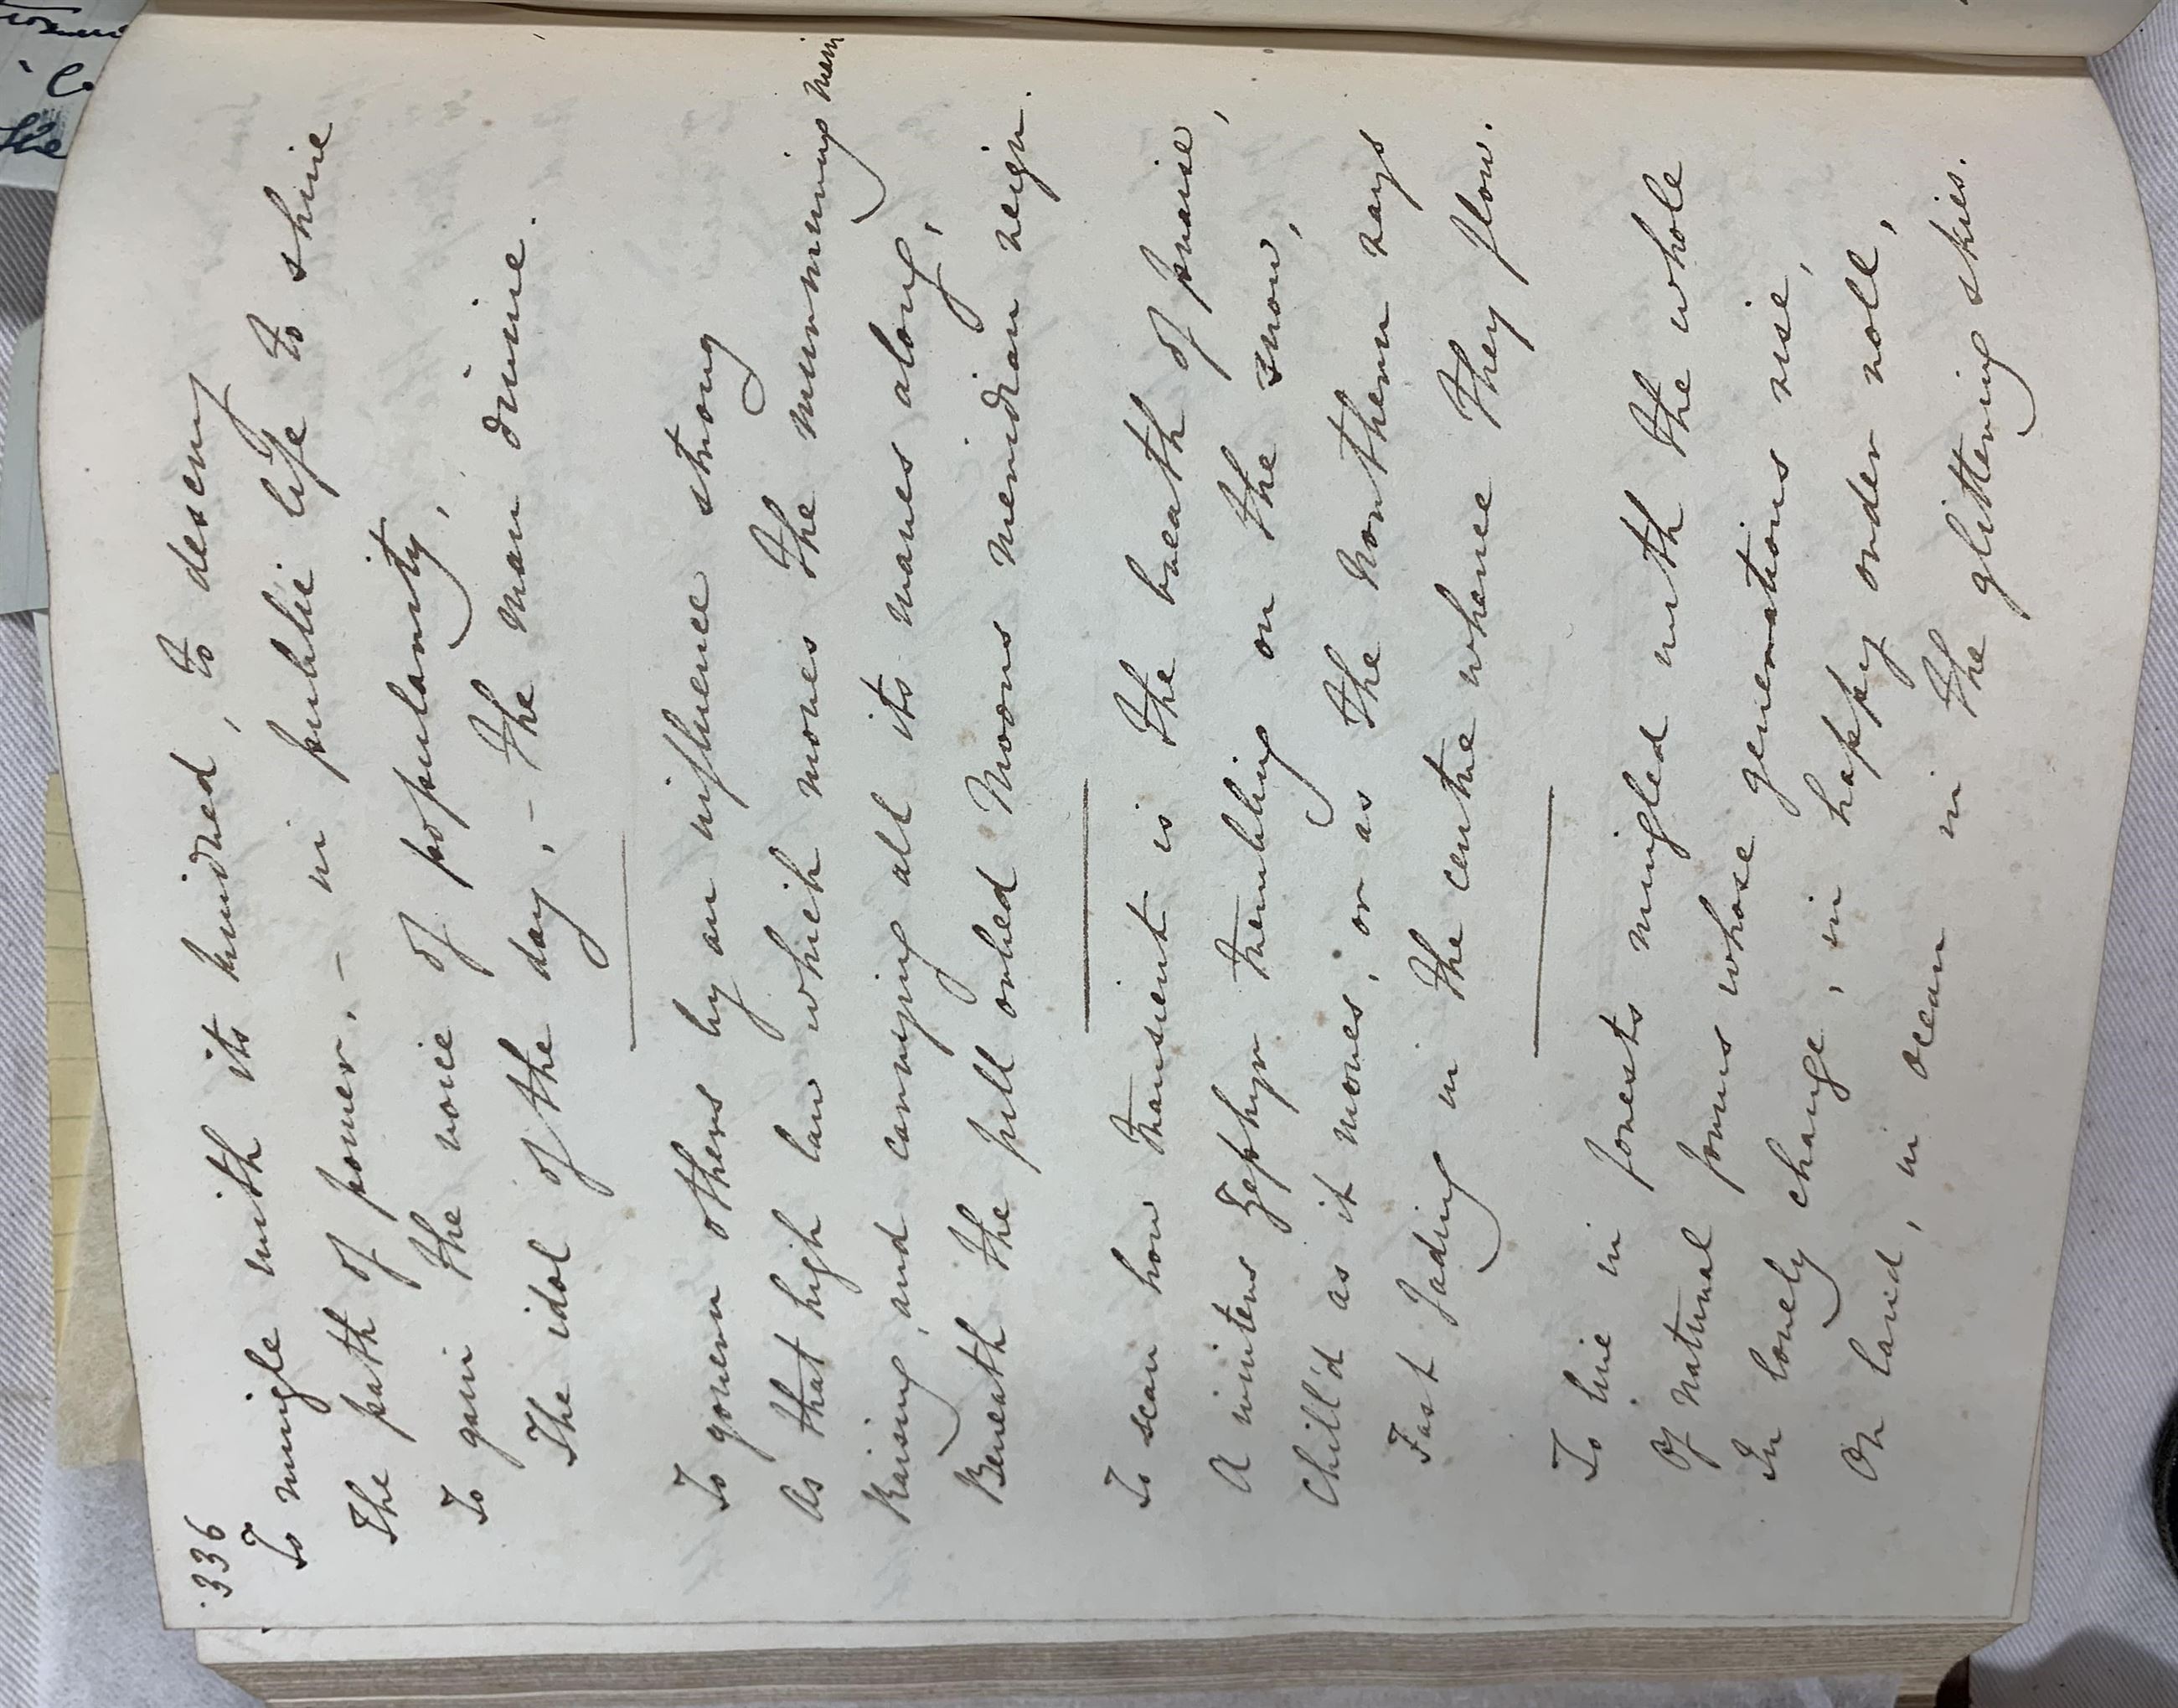 336
To mingle with its kindred, to descry
The path of power, – in public life to shine
To gain the voice of popularity,
The idol of the day, – the man divine.
To govern others by an influence strong
As that high law which moves the murmuring main
Raising, and carrying all its waves along,
Beneath the full orbed Moons meridian reign.
To scan how transient is the breath of praise,
A winters zephyr trembling on the snow,
Chill'd as it moves, or as the northern rays
Fast fading in the centre whence they flow.
To live in forests mingled with the whole
Of natural forms whose generations rise,
In lonely change, in happy order roll,
On land, in ocean in the glittering skies.
the